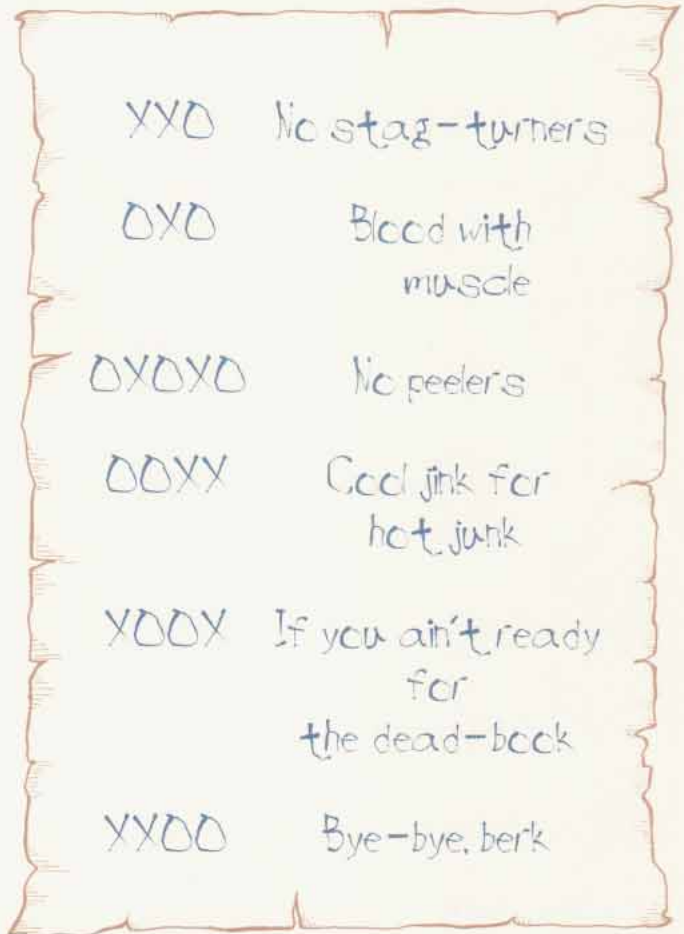 XXO No stag-turners
OXO Blood with
muscle
OXOXO No peelers
OOXX Cool jink for
hot junk
XOOX If you ain't ready
for
the dead-book
XXOO Bye-bye, berk